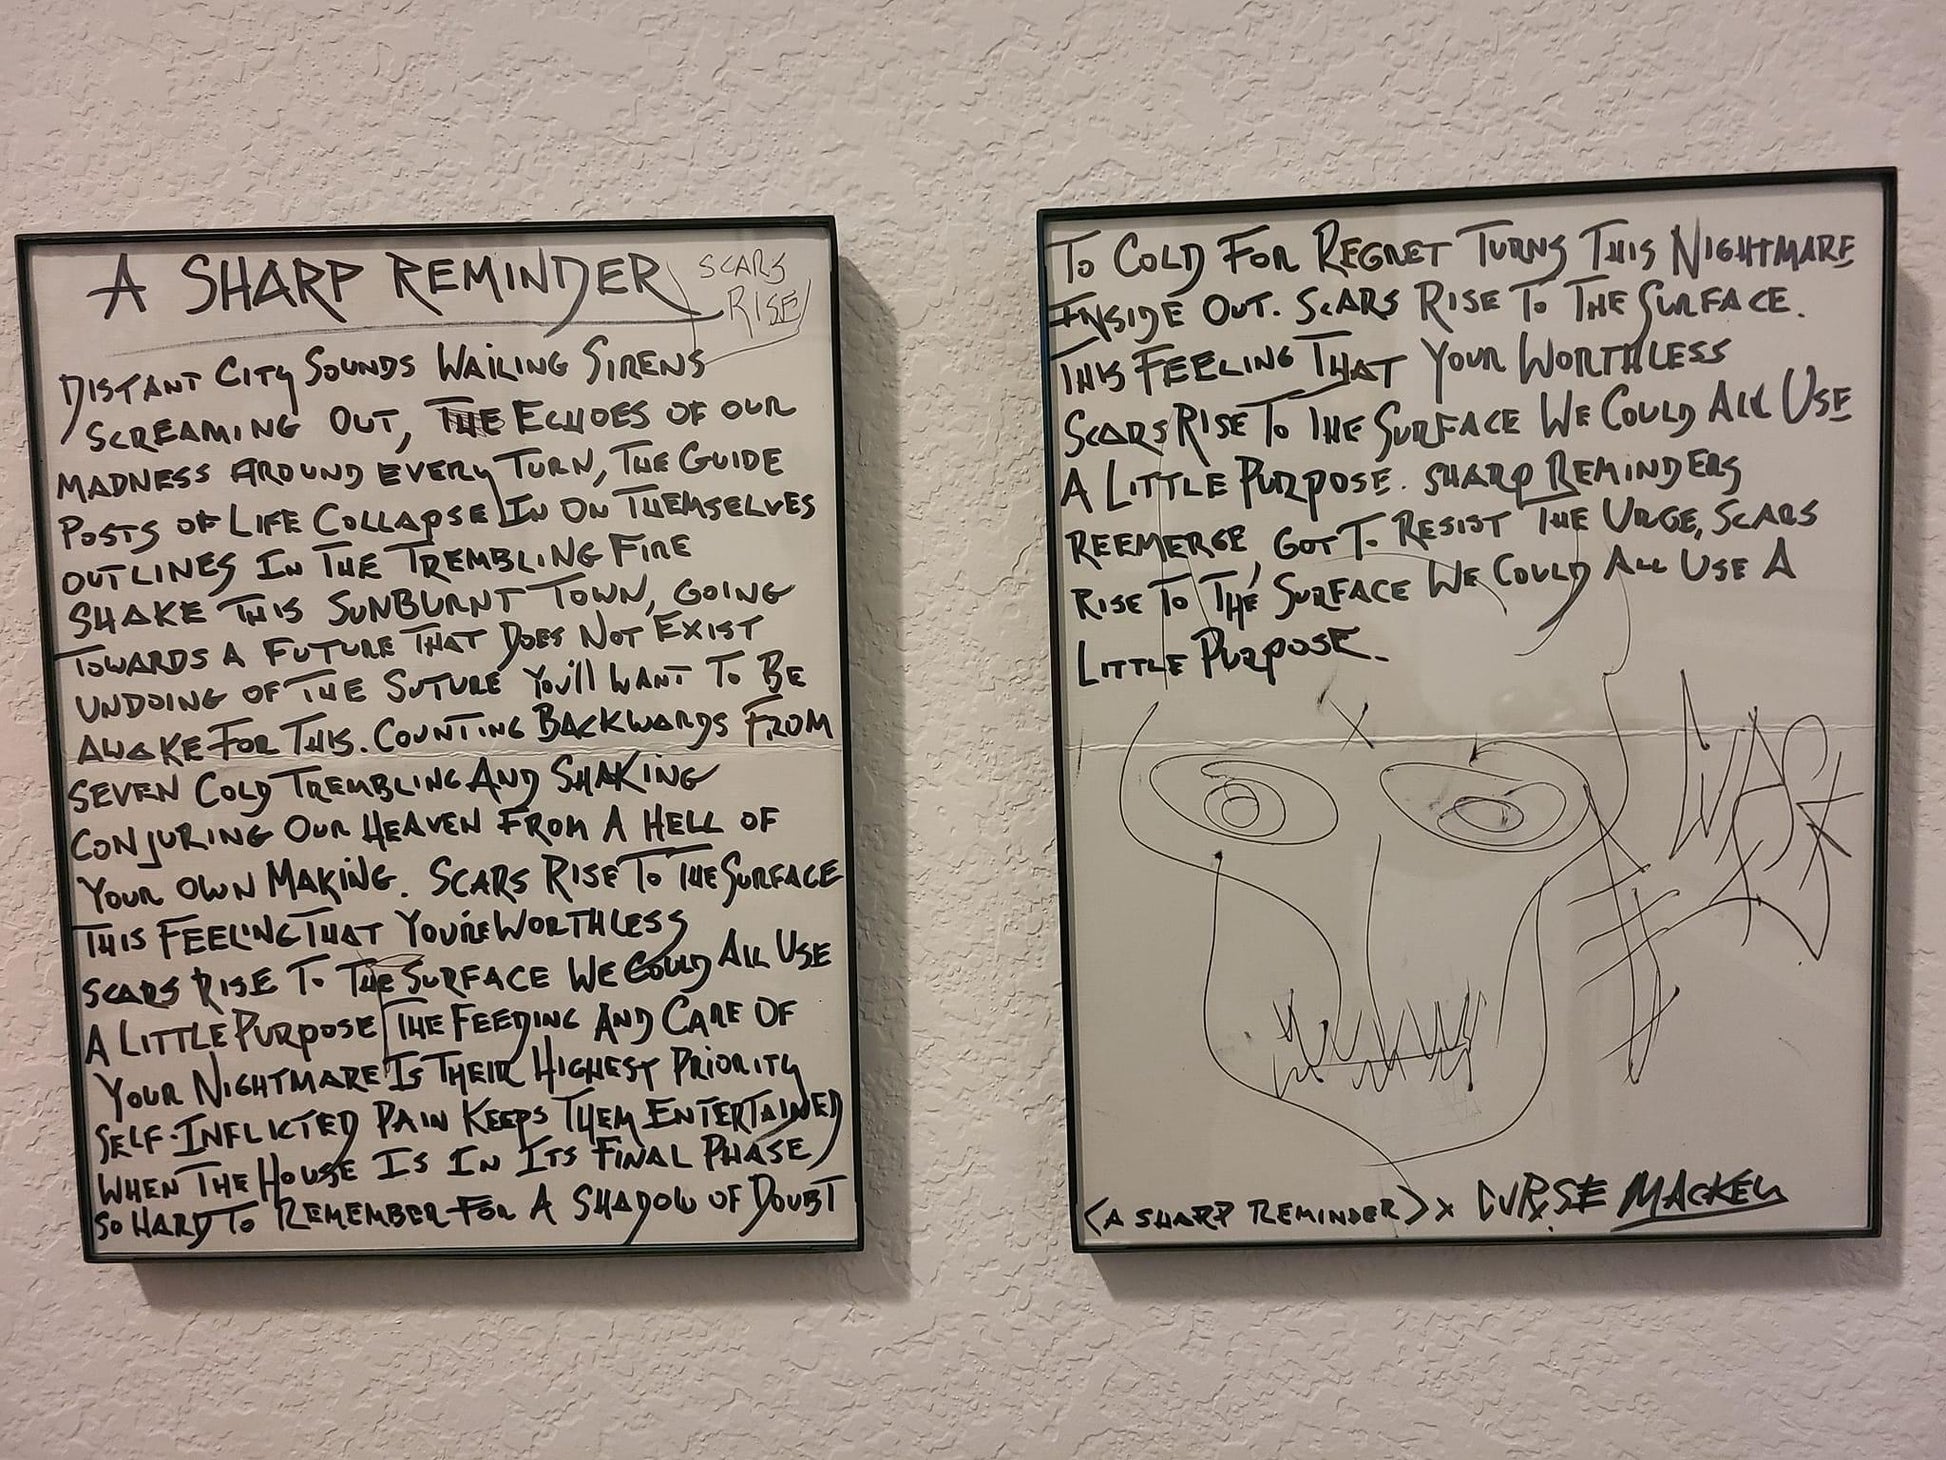 A SHARP REMINDER
SCARS
RISE
DISTANT CITY SOUNDS WAILING SIRENS
SCREAMING OUT, THE ECHOES OF OUR
MADNESS AROUND EVERY TURN, THE GUIDE
POSTS OF LIFE COLLAPSE IN ON THEMSELVES
OUTLINES IN THE TREMBLING FIRE
SHAKE THIS SUNBURNT TOWN, GOING
TOWARDS A FUTURE THAT DOES NOT EXIST
UNDOING OF THE SUTURE YOU'll WANT TO BE
AWAKE FOR THIS. COUNTING BACKWARDS FROM
SEVEN COLD TREMBLING AND SHAKING
CONJURING OUR HEAVEN FROM A HELL OF
YOUR OWN MAKING. SCARS RISE TO THE SURFACE
THIS FEELING THAT YOU'RE WORTHLESS
SCARS RISE TO THE SURFACE WE COULD ALL USE
A LITTLE PURPOSE THE FEEDING AND CARE OF
YOUR NIGHTMARE IS THEIR HIGHEST PRIORITY
SELF-INFLICTED PAIN KEEPS THEM ENTERTAINED
WHEN THE HOUSE IS IN ITS FINAL PHASE
SO HARD TO REMEMBER FOR A SHADOW OF DOUBT
TO COLD FOR REGRET TURNS THIS NIGHTMARE
INSIDE OUT. SCARS RISE TO THE SURFACE.
THIS FEELING THAT YOUR WORTHLESS
SCARS RISE TO THE SURFACE WE COULD ALL USE
A LITTLE PURPOSE. SHARP REMINDERS
REEMERGE, GOT TO RESIST THE URGE, SCARS
RISE TO THE SURFACE WE COULD ALL USE A
LITTLE PURPOSE.
X
(A SHARP REMINDER) X CURSE MACKEY